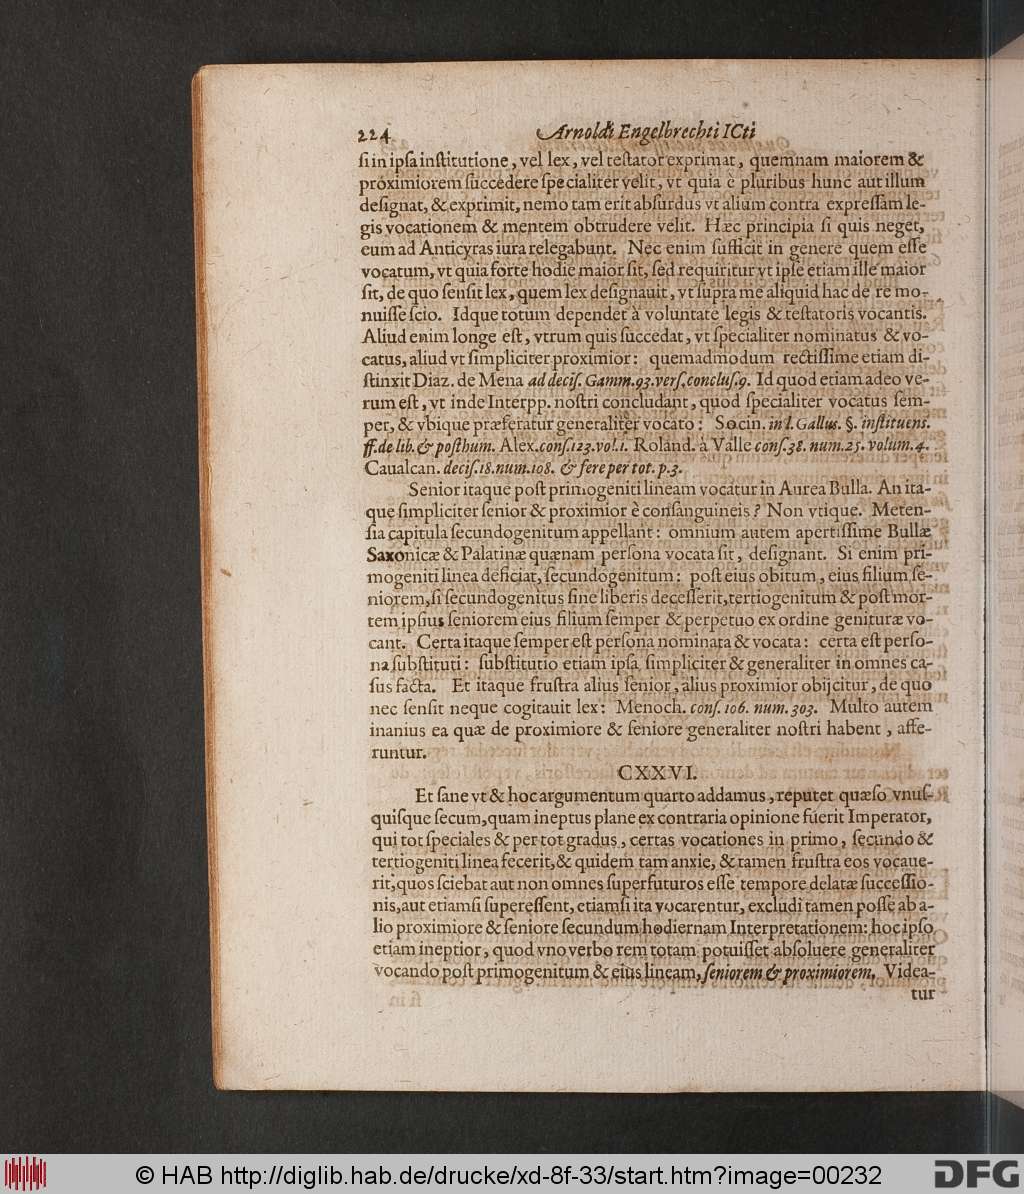 224 Arnoldi Engelbrechti ICti
si in ipsa institutione, vel lex, vel testator exprimat, quemnam maiorem &
próximiorem succedere specialiter velit, vt quia è pluribus hunc aut illum
designat, & exprimit, nemo tam erit absurdus vt alium contra expressam le-
gis vocationem & mentem obtrudere velit. Hæc principia si quis neget,
eum ad Anticyras iura relegabunt. Nec enim sufficit in genere quem esse
vocatum, vt quia forte hodie maior sit, sed requiritur vt ipse etiam ille maior
sit, de quo sensit lex, quem lex designauit, vt supra me aliquid hac de re mo-
nuisse scio. Idque totum dependet à voluntate legis & testatoris vocantis.
Aliud enim longe est, vtrum quis succedat, vt specialiter nominatus & vo-
catus, aliud vt simpliciter proximior: quemadmodum rectissime etiam di-
stinxit Diaz. de Mena ad decis. Gamm. 93. vers. conclus. 9. Id quod etiam adeo ve-
rum est, vt inde Interpp. nostri concludant, quod specialiter vocatus sem-
per, & vbique præferatur generaliter vocato: Socin. in l. Gallus. §. instituens.
ff. de lib. & posthum. Alex. cons. 123. vol. 1. Roland. à Valle cons. 38. num. 25. volum. 4.
Caualcan. decis. 18. num. 108. & fere per tot. p. 3.
Senior itaque post primogeniti lineam vocatur in Aurea Bulla. An ita-
que simpliciter senior & proximior è consanguineis? Non vtique. Meten-
sia capitula secundogenitum appellant: omnium autem apertissime Bullæ
Saxonicæ & Palatinæ quænam persona vocata sit, designant. Si enim pri-
mogeniti linea deficiat, secundogenitum: post eius obitum, eius filium se-
niorem, si secundogenitus sine liberis decesserit, tertiogenitum & post mor-
tem ipsius seniorem eius filium semper & perpetuo ex ordine genituræ vo-
cant. Certa itaque semper est persona nominata & vocata: certa est perso-
na substituti: substitutio etiam ipsa simpliciter & generaliter in omnes ca-
sus facta. Et itaque frustra alius senior, alius proximior obijcitur, de quo
nec sensit neque cogitauit lex: Menoch. cons. 106. num. 303. Multo autem
inanius ea quæ de proximiore & seniore generaliter nostri habent, affe-
runtur.
CXXVI.
Et sane vt & hoc argumentum quarto addamus, reputet quæso vnus-
quisque secum, quam ineptus plane ex contraria opinione fuerit Imperator,
qui tot speciales & per tot gradus, certas vocationes in primo, secundo &
tertiogeniti linea fecerit, & quidem tam anxie, & tamen frustra eos vocaue-
rit, quos sciebat aut non omnes superfuturos esse tempore delatæ successio-
nis, aut etiamsi superessent, etiamsi ita vocarentur, excludi tamen posse ab a-
lio proximiore & seniore secundum hodiernam Interpretationem: hoc ipso
etiam ineptior, quod vno verbo rem totam potuisset absoluere generaliter
vocando post primogenitum & eius lineam, seniorem & proximiorem. Videa-
tur
© HAB http://diglib.hab.de/drucke/xd-8f-33/start.htm?image=00232
DFG